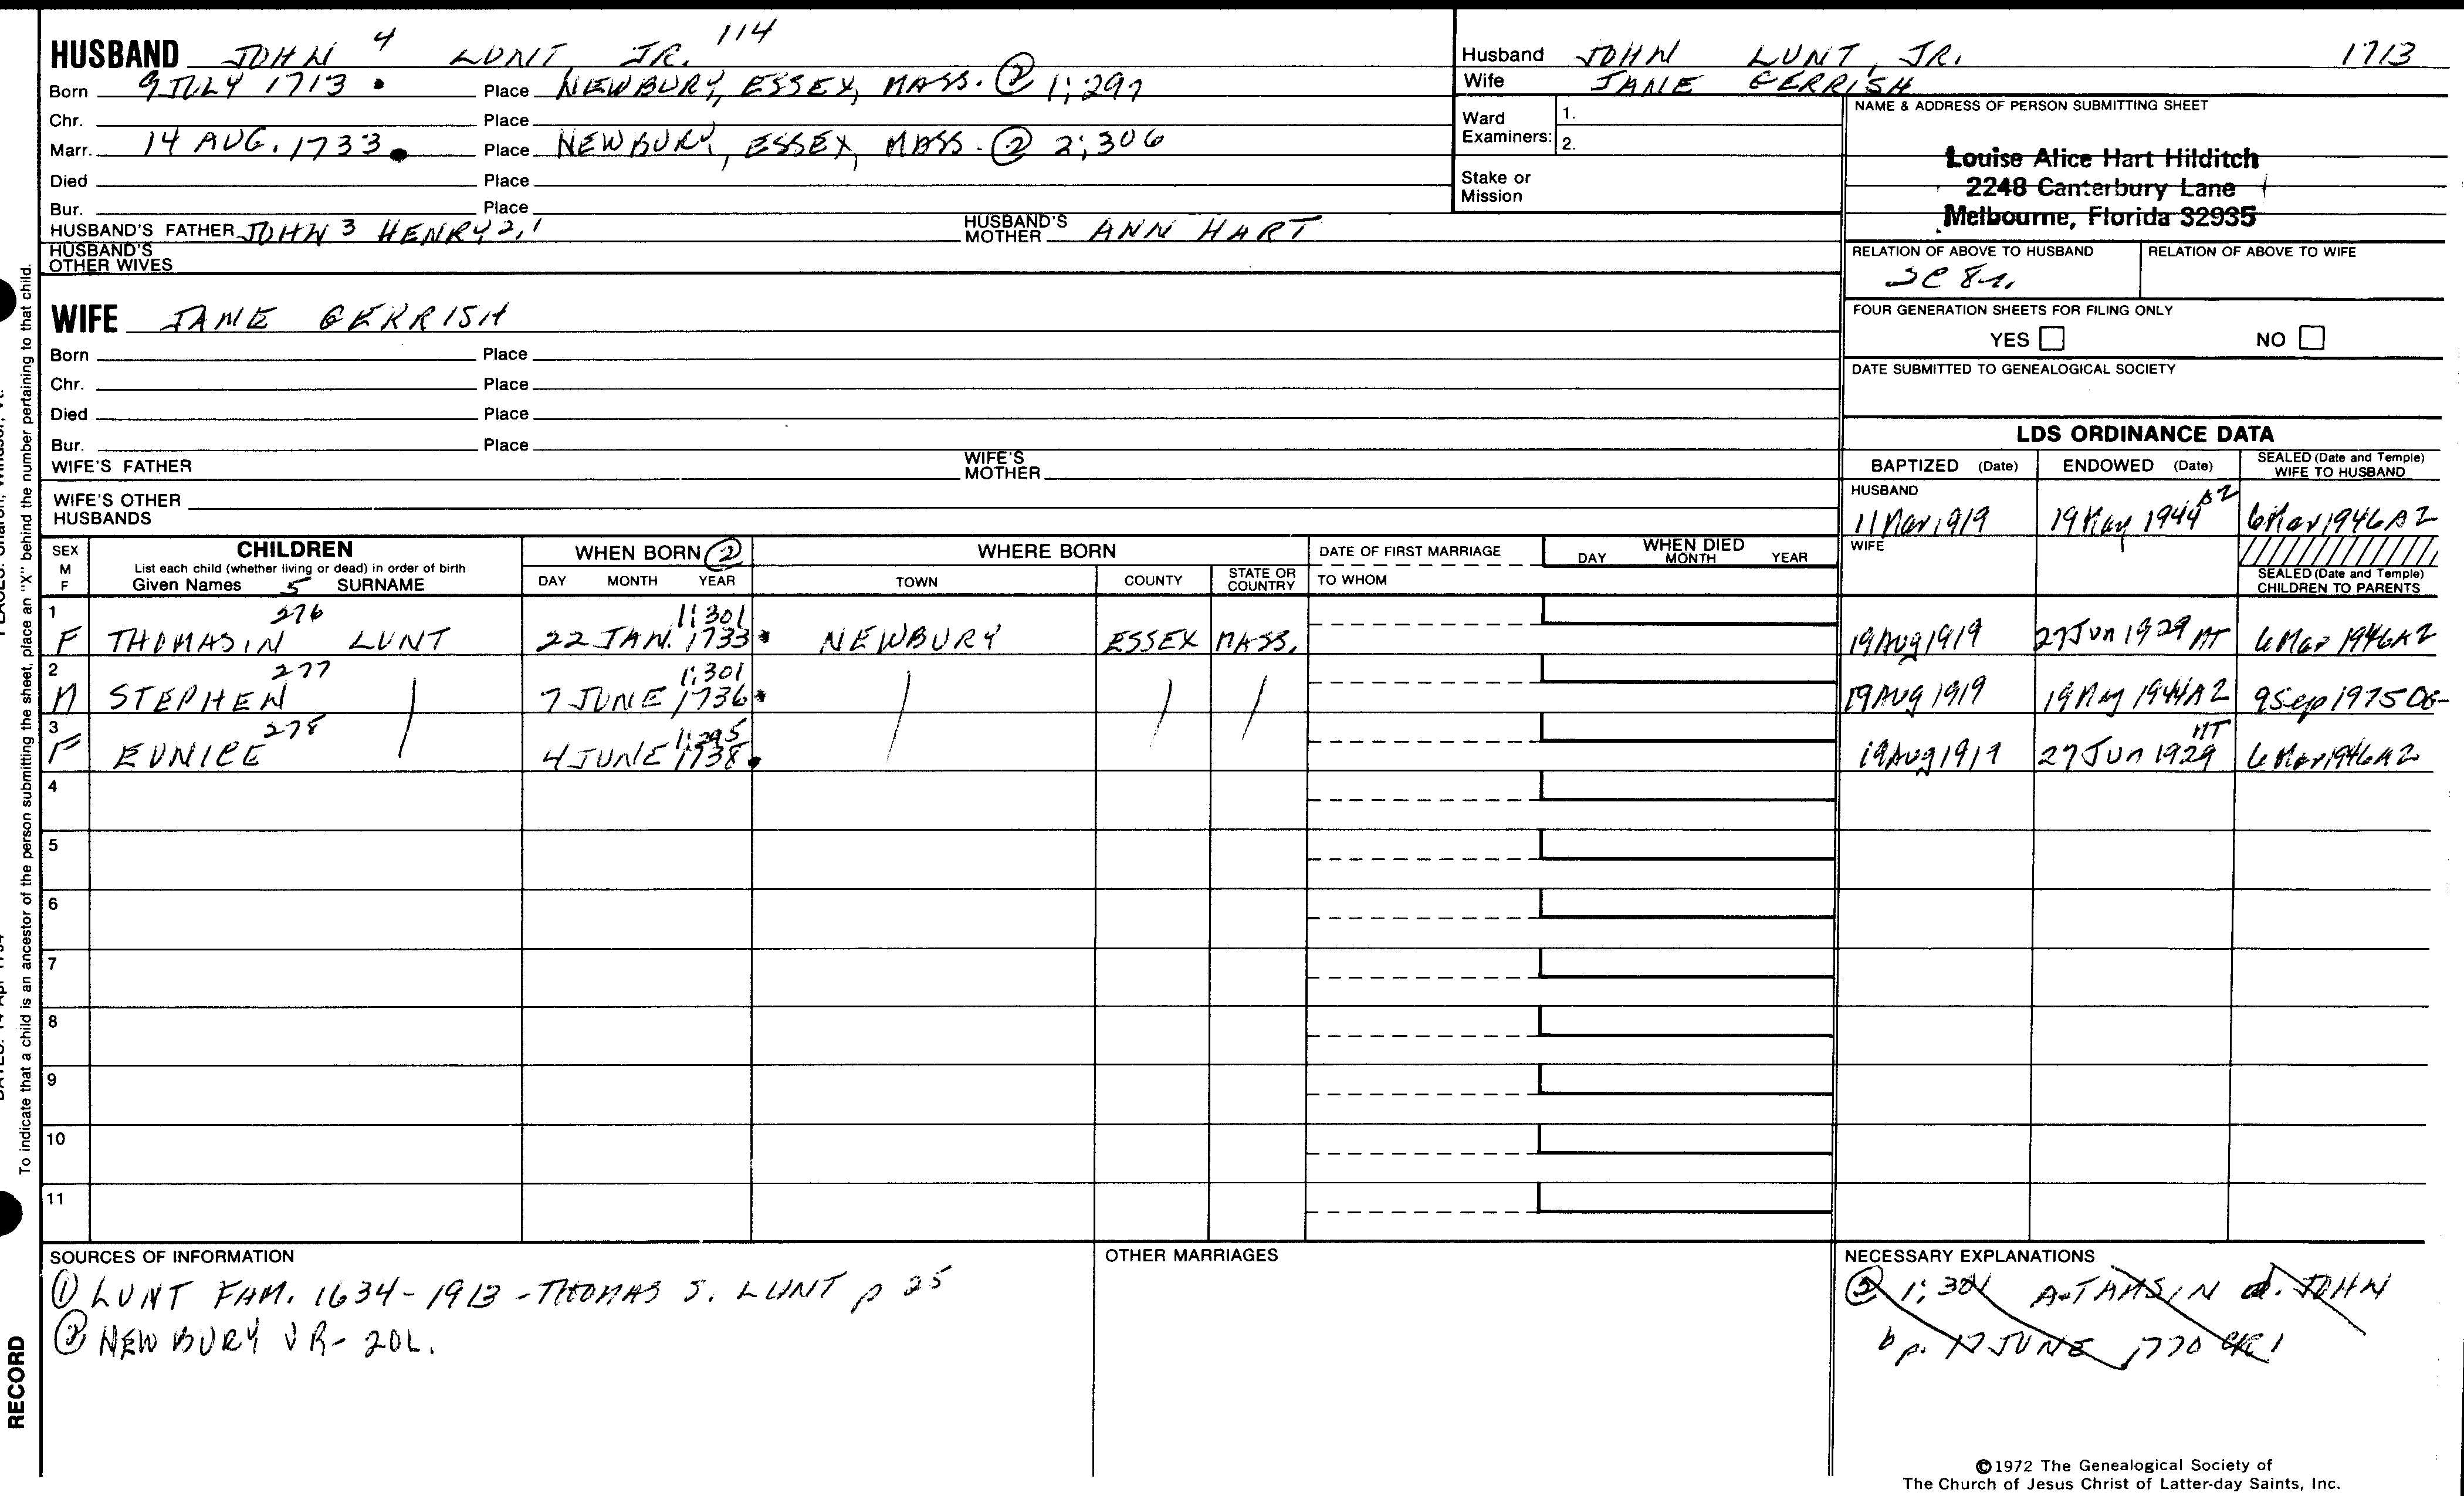 HUSBAND JOHN 4 LUNT, JR. 114
Born 9 JULY 1713 Place NEWBURY, ESSEX, MASS. ② 1;297
Chr. Place
Marr. 14 AUG. 1733 Place NEWBURY, ESSEX, MASS. ② 2;306
Died Place
Bur. Place
HUSBAND'S FATHER JOHN 3 HENRY 2,1 HUSBAND'S MOTHER ANN HART
HUSBAND'S OTHER WIVES
WIFE JANE GERRISH
Born Place
Chr. Place
Died Place
Bur. Place
WIFE'S FATHER WIFE'S MOTHER
WIFE'S OTHER HUSBANDS
Husband JOHN LUNT, JR. 1713
Wife JANE GERRISH
Ward Examiners: 1.
2.
Stake or Mission
NAME & ADDRESS OF PERSON SUBMITTING SHEET
Louise Alice Hart Hilditch
2248 Canterbury Lane
Melbourne, Florida 32935
RELATION OF ABOVE TO HUSBAND RELATION OF ABOVE TO WIFE
FOUR GENERATION SHEETS FOR FILING ONLY
YES NO
DATE SUBMITTED TO GENEALOGICAL SOCIETY
LDS ORDINANCE DATA
BAPTIZED (Date) ENDOWED (Date) SEALED (Date and Temple) WIFE TO HUSBAND
HUSBAND 11 Mar 1919 19 May 1944 AZ 6 Mar 1946 AZ
WIFE
SEALED (Date and Temple) CHILDREN TO PARENTS
SEX M F CHILDREN WHEN BORN ② WHERE BORN DATE OF FIRST MARRIAGE WHEN DIED
List each child (whether living or dead) in order of birth
Given Names 5 SURNAME DAY MONTH YEAR TOWN COUNTY STATE OR COUNTRY TO WHOM DAY MONTH YEAR
1 276 1;301
F THOMASIN LUNT 22 JAN. 1733 NEWBURY ESSEX MASS. 19 Aug 1919 27 Jun 1929 AT 6 Mar 1946 AZ
2 277 1;301
M STEPHEN 7 JUNE 1736 19 Aug 1919 19 May 1944 AZ 9 Sep 1975 OG-
3 278 1;295
F EUNICE 4 JUNE 1738 19 Aug 1919 27 Jun 1929 MT 6 Mar 1946 AZ
4
5
6
7
8
9
10
11
SOURCES OF INFORMATION
① LUNT FAM. 1634-1913 - THOMAS S. LUNT p 25
② NEWBURY VR - 20L.
OTHER MARRIAGES
NECESSARY EXPLANATIONS
② 1;301 A-TAMSIN d. JOHN
bp. 17 JUNE 1770
©1972 The Genealogical Society of
The Church of Jesus Christ of Latter-day Saints, Inc.
To indicate that a child is an ancestor of the person submitting the sheet, place an "X" behind the number pertaining to that child.
RECORD